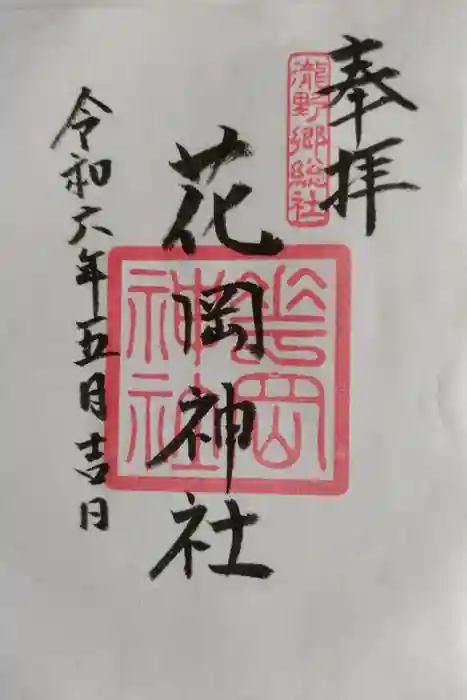 奉拝
瀧野郷総社
花岡神社
華岡神社
令和六年五月吉日